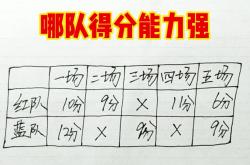 哪队得分能力强
一场 二场 三场 四场 五场
红队 10分 9分 × 11分 6分
蓝队 12分 × 9分 × 9分